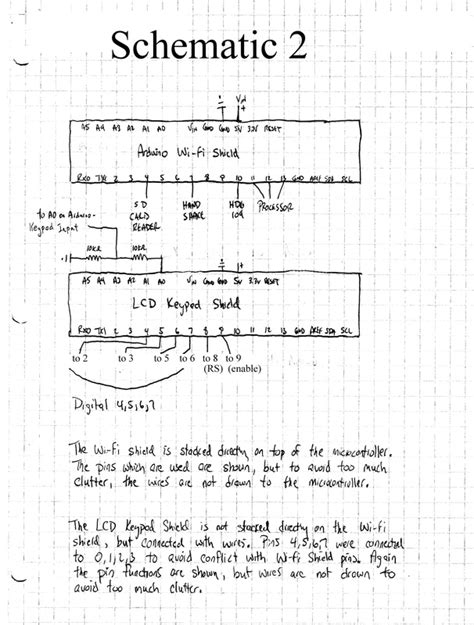 Schematic 2
Vin
+
A5 A4 A3 A2 A1 A0 Vin GND GND 5V 3.3V RESET
Arduino Wi-Fi Shield
RX0 TX1 2 3 4 5 6 7 8 9 10 11 12 13 GND AREF SDA SCL
SD CARD READER
HAND SHAKE
HDG 104
PROCESSOR
to A0 on Arduino-
Keypad Input
10KR 10KR
A5 A4 A3 A2 A1 A0 Vin GND GND 5V 3.3V RESET
LCD Keypad Shield
RX0 TX1 2 3 4 5 6 7 8 9 10 11 12 13 GND AREF SDA SCL
to 2 to 3 to 5 to 6 to 8 to 9
(RS) (enable)
Digital 4,5,6,7
The Wi-Fi shield is stacked directly on top of the microcontroller.
The pins which are used are shown, but to avoid too much
clutter, the wires are not drawn to the microcontroller.
The LCD Keypad Shield is not stacked directly on the Wi-Fi
shield, but connected with wires. Pins 4,5,6,7 were connected
to 0,1,2,3 to avoid conflict with Wi-Fi Shield pins. Again
the pin functions are shown, but wires are not drawn to
avoid too much clutter.